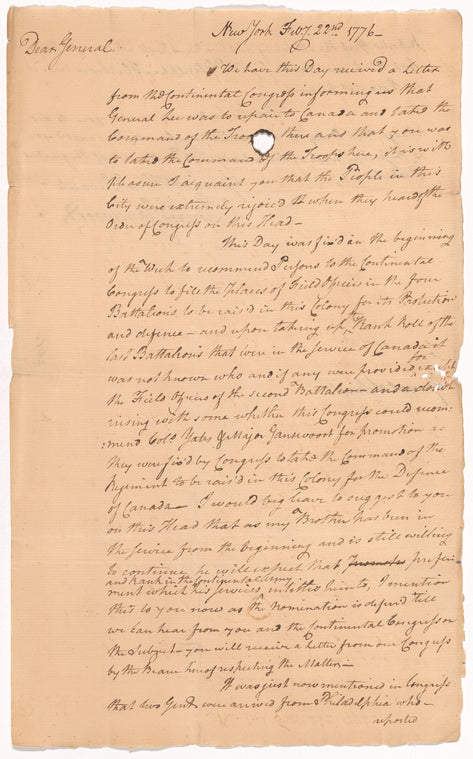 New York Feby. 22nd 1776-
Dear General.
We have this Day received a Letter
from the Continental Congress informing us that
General Lee was to repair to Canada and take the
Command of the Troops there and that you was
to take the Command of the Troops here, it is with
pleasure I acquaint you that the People in this
City were extremely rejoiced when they heard of the
Order of Congress on this Head-
This Day was fix'd in the beginning
of the Week to recommend Persons to the Continental
Congress to fill the Places of Field Officers in the four
Battalions to be rais'd in this Colony for its Protection
and defence - and upon taking up the Rank Roll of the
last Battalions that were in the Service of Canada it
was not known who and if any were provided for except
the Field Officers of the second Battalion - and a doubt
rising with some whether this Congress could recom
:mend Colo. Yates & Major Gansevoort for promotion as
they were fix'd by Congress to take the Command of the
Regiment to be rais'd in this Colony for the Defence
of Canada - I would beg leave to suggest to you
on this Head that as my Brother has been in
the Service from the beginning and is still willing
to continue he will expect that Promotion prefer
and Rank in the Continental Army
ment which his Services entitles him to, I mention
this to you now as the Nomination is defered till
we can hear from you and the Continental Congress on
the Subject - you will receive a Letter from our Congress
by the Bearer hereof respecting the Matter.-
It was just now mentioned in Congress
that two Gent. were arrived from Philadelphia who
reported